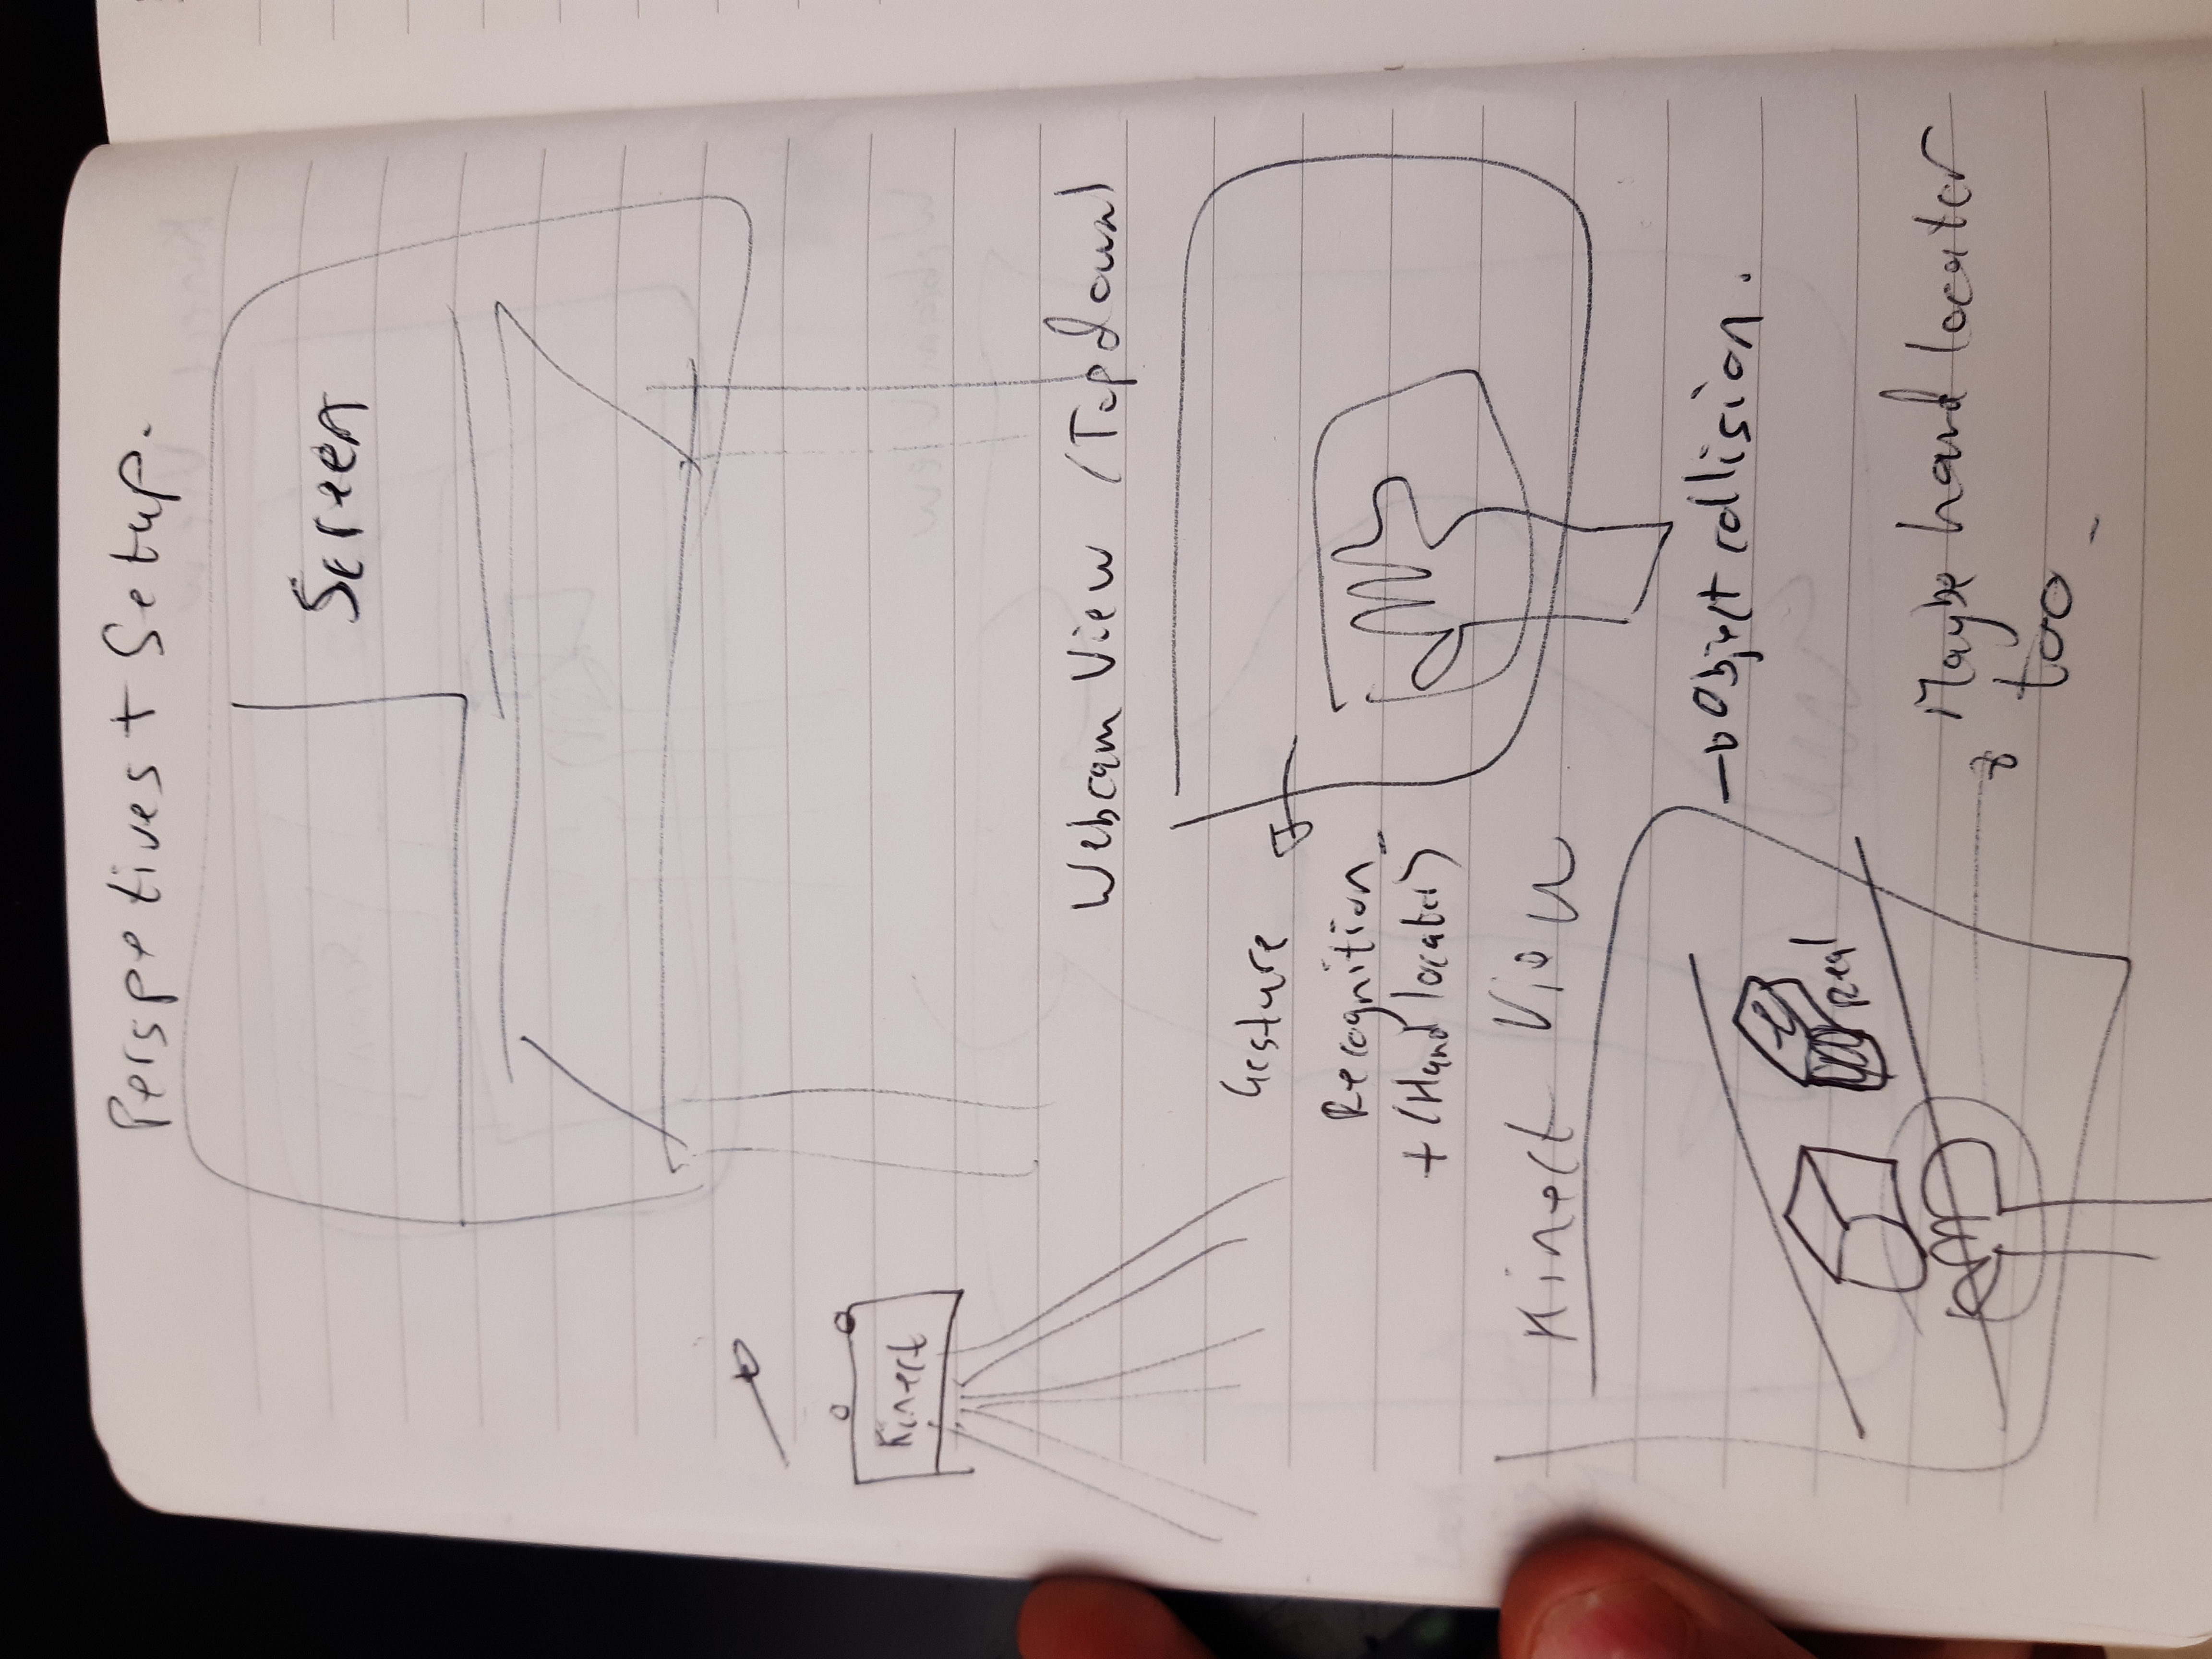 Perspetives + Setup.
Screen
Kinect
Webcam View (Topdown)
Gesture
Recognition
+ (Hand locater)
Kinect View
→ Object collision.
Real
Maybe hand locater
too